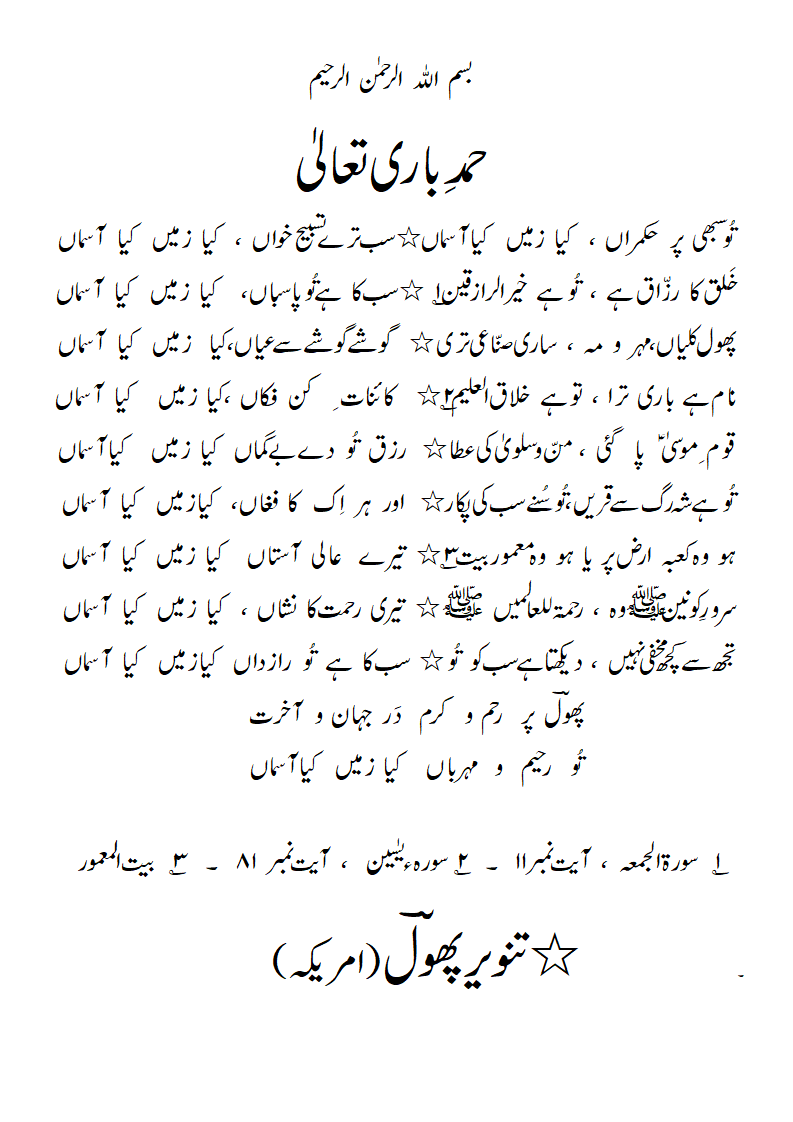 بسم اللہ الرحمٰن الرحیم
حمدِ باری تعالیٰ
تُو سبھی پر حکمراں ، کیا زمیں کیا آسماں☆سب ترے تسبیح خواں ، کیا زمیں کیا آسماں
خَلق کا رزّاق ہے ، تُو ہے خیرالرازقین۱؂ ☆سب کا ہے تُو پاسباں، کیا زمیں کیا آسماں
پھول کلیاں،مہر و مہ ، ساری صنّاعی تری ☆ گوشے گوشے سے عیاں،کیا زمیں کیا آسماں
نام ہے باری ترا ، تو ہے خلاق العلیم۲؂☆ کائناتِ کن فکاں ،کیا زمیں کیا آسماں
قومِ موسیٰؑ پا گئی ، منّ و سلویٰ کی عطا☆ رزق تُو دے بے گماں کیا زمیں کیا آسماں
تُو ہے شہ رگ سے قریں،تُو سُنے سب کی پکار☆ اور ہر اِک کا فغاں، کیا زمیں کیا آسماں
ہو وہ کعبہ ارض پر یا ہو وہ معمور بیت۳؂☆ تیرے عالی آستاں کیا زمیں کیا آسماں
سرورِ کونینﷺ وہ ، رحمۃ للعالمیں ﷺ☆ تیری رحمت کا نشاں ، کیا زمیں کیا آسماں
تجھ سے کچھ مخفی نہیں ، دیکھتا ہے سب کو تُو☆ سب کا ہے تُو رازداں کیا زمیں کیا آسماں
پھولؔ پر رحم و کرم دَر جہان و آخرت
تُو رحیم و مہرباں کیا زمیں کیا آسماں
۱؂ سورۃ الجمعہ ، آیت نمبر۱۱ ۔ ۲؂ سورہء یٰسین ، آیت نمبر ۸۱ ۔ ۳؂ بیت المعمور
☆تنویر پھولؔ(امریکہ)
۔